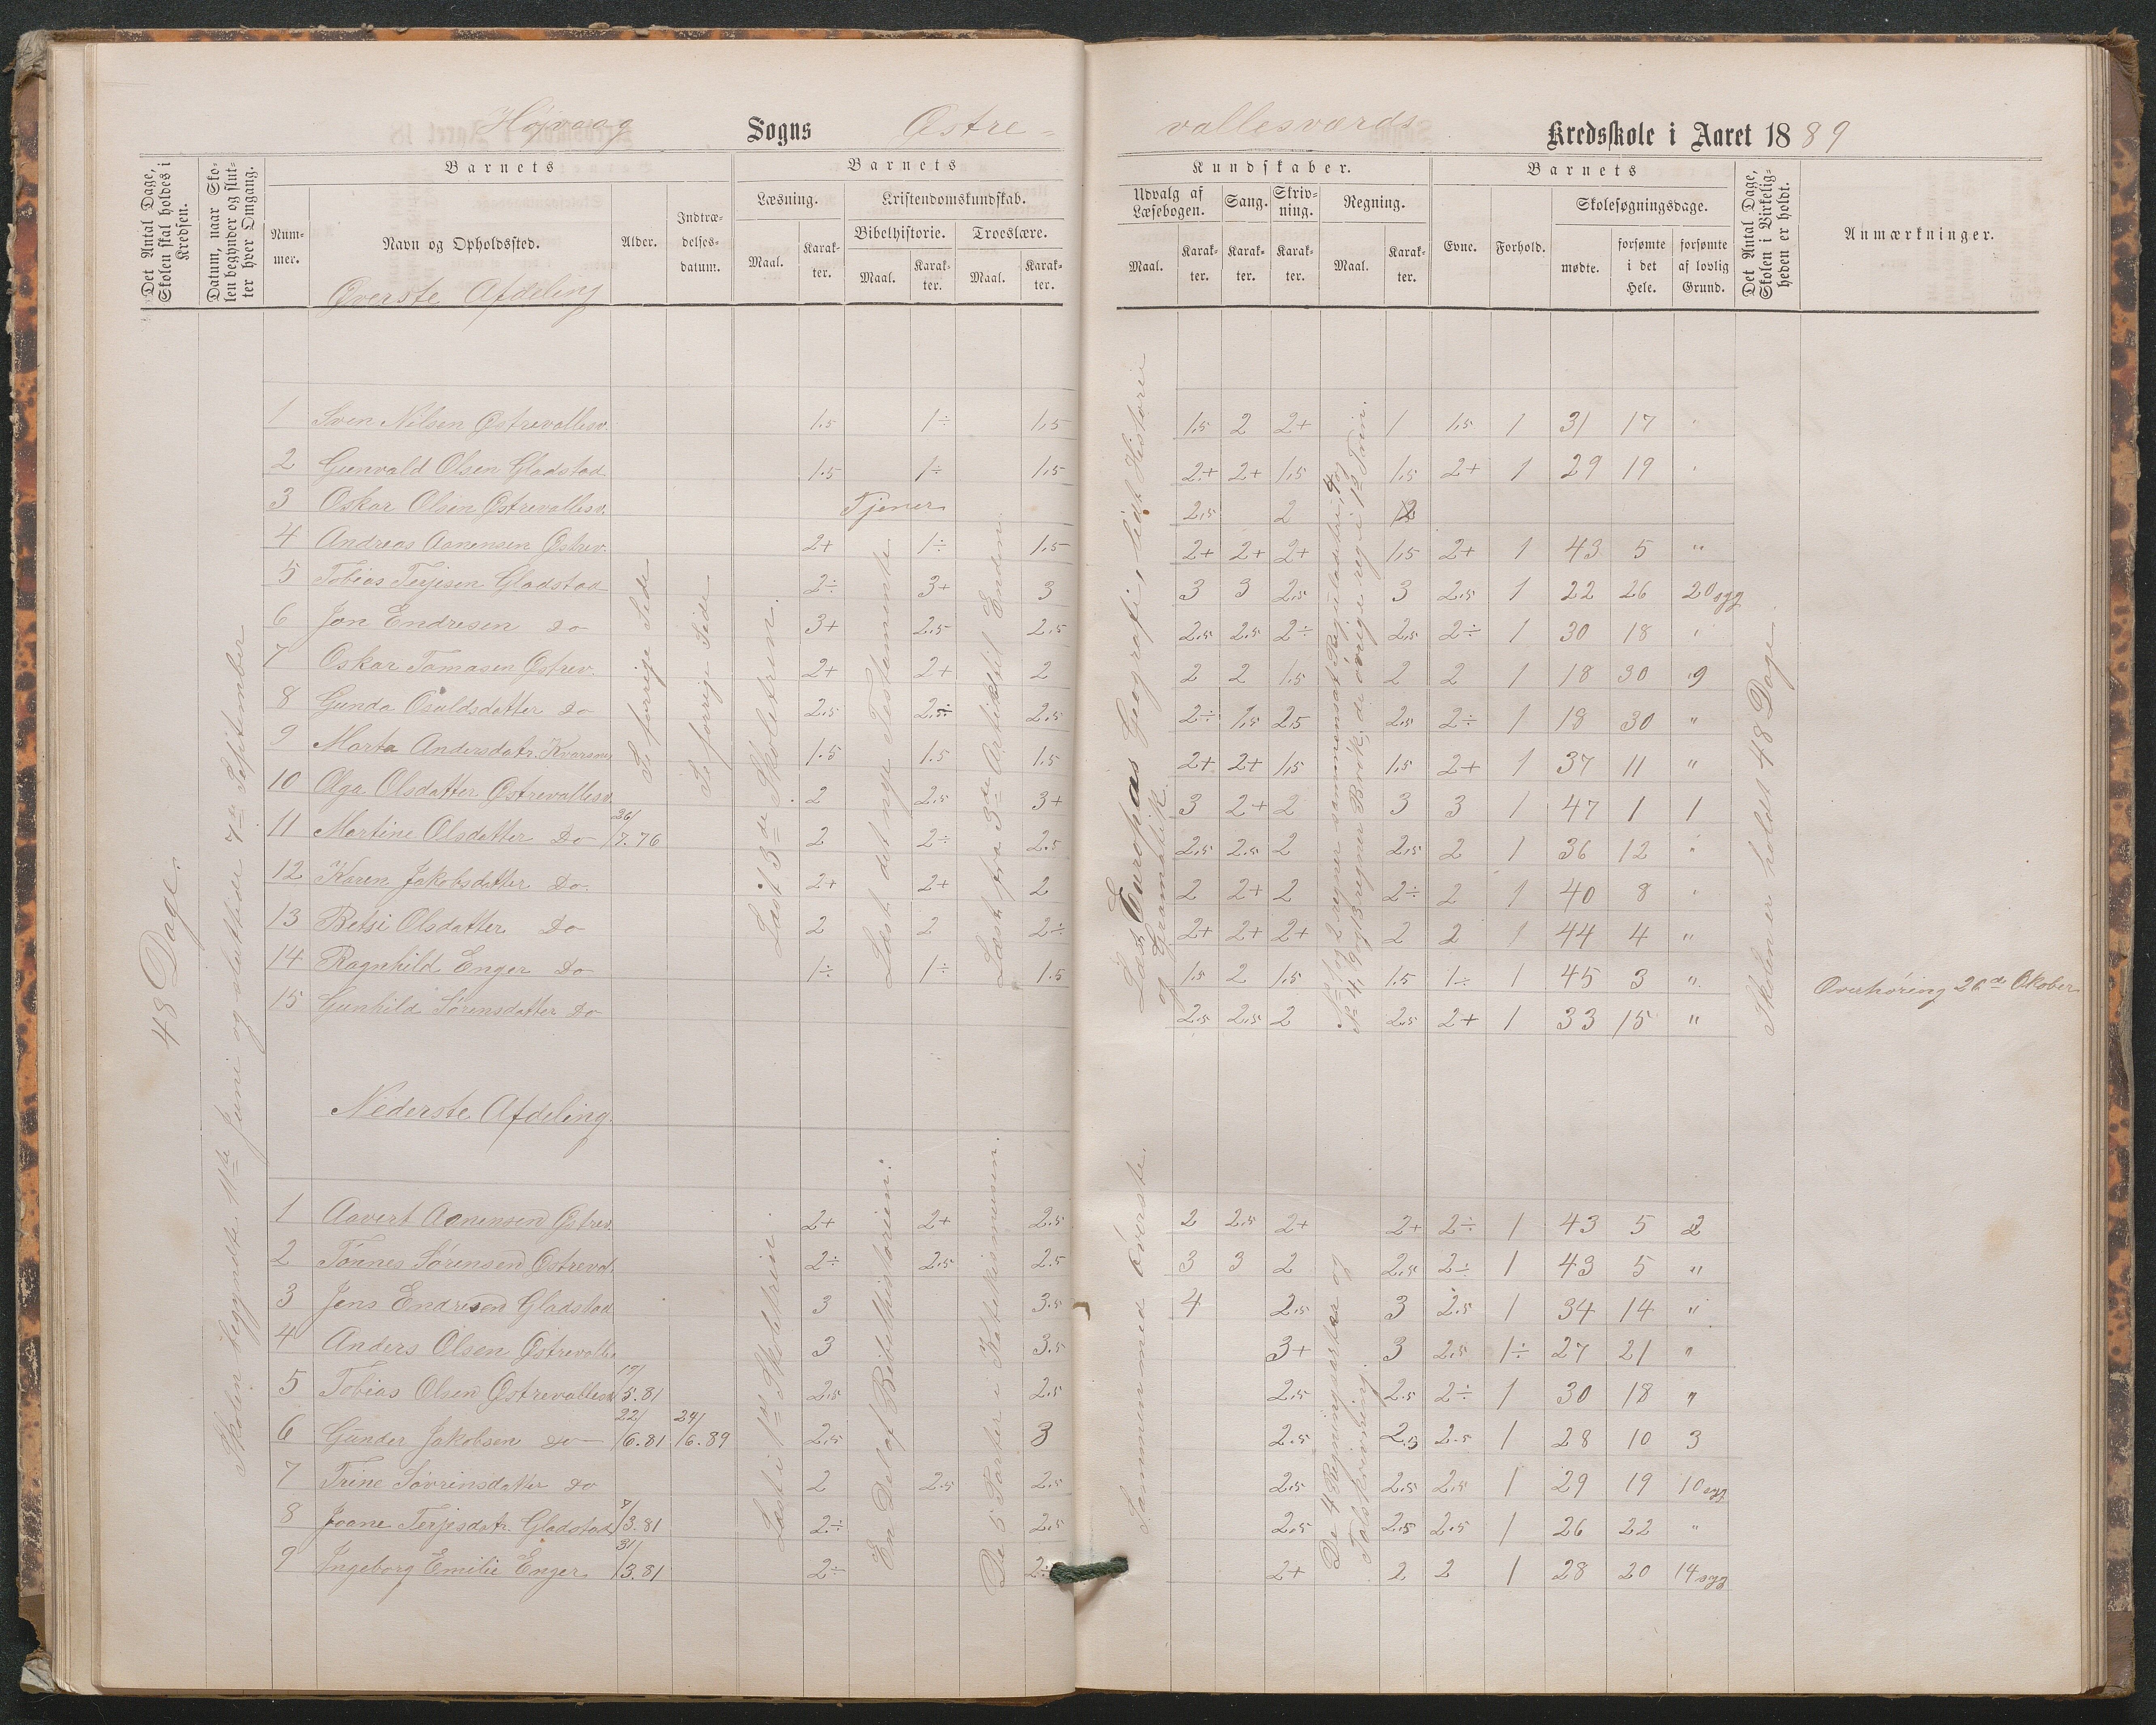 Højvaag Sogns Østre-
vallesværds Kredsskole i Aaret 1889
Det Antal Dage, Skolen skal holdes i Kredsen.
Datum, naar Skolen begynder og slutter hver Omgang.
Barnets
Nummer.
Navn og Opholdssted.
Alder.
Indtrædelsesdatum.
Barnets
Læsning.
Maal.
Karakter.
Kristendomskundskab.
Bibelhistorie.
Maal.
Karakter.
Troeslære.
Maal.
Karakter.
Kundskaber.
Udvalg af Læsebogen.
Maal.
Karakter.
Sang.
Karakter.
Skrivning.
Karakter.
Regning.
Maal.
Karakter.
Barnets
Evne.
Forhold.
Skolesøgningsdage.
mødte.
forsømte i det Hele.
forsømte af lovlig Grund.
Det Antal Dage, Skolen i Virkeligheden er holdt.
Anmærkninger.
Øverste Afdeling
48 Dage.
Skolen begyndte 11te Juni og sluttede 7de September
Se forrige Side
Se forrige Side
Læst i 3de Skoletrin.
Læst det nye Testamente
Læst fra 3de Artikel til Enden.
Læst Europas Geografi, lidt Historie
og Gramatik.
Skolen er holdt 48 Dage.
1 Sven Nilsen Østrevallesv. 1.5 1÷ 1,5 1,5 2 2+ 1 1,5 1 31 17 "
2 Gunvald Olsen Gladstad 1.5 1÷ 1,5 2+ 2+ 1,5 1,5 2+ 1 29 19 "
3 Oskar Olsen Østrevallesv. Tjener 2,5 2 2
4 Andreas Aanensen Østrev. 2+ 1÷ 1,5 2+ 2+ 2+ 1,5 2+ 1 43 5 "
5 Tobias Terjesen Gladstad 2÷ 3+ 3 3 3 2,5 3 2.5 1 22 26 20 syg
6 Jon Endresen do 3+ 2.5 2.5 2.5 2.5 2÷ 2,5 2÷ 1 30 18 "
7 Oskar Tomasen Østrev. 2+ 2+ 2 2 2 1.5 2 2 1 18 30 9
8 Gunda Osuldsdatter do 2.5 2.5 2.5 2÷ 1,5 2,5 2,5 2÷ 1 18 30 "
9 Marta Andersdatr. 1.5 1.5 1.5 2+ 2+ 1,5 1,5 2+ 1 37 11 "
10 Olga Olsdatter Østrevallesv. 2 2.5 3+ 3 2+ 2 3 3 1 47 1 1
11 Martine Olsdatter Do 26/7.76 2 2÷ 2.5 2,5 2.5 2 2,5 2 1 36 12 "
12 Karen Jakobsdatter Do. 2+ 2+ 2 2 2+ 2 2÷ 2 1 40 8 "
13 Betsi Olsdatter Do 2 2 2÷ 2+ 2+ 2+ 2 2 1 44 4 "
14 Ragnhild Enger Do 1÷ 1÷ 1.5 1.5 2 1.5 1.5 1÷ 1 45 3 " Overhøring 26de Oktober
15 Gunhild Sørensdatter Do 2.5 2.5 2 2.5 2+ 1 33 15 "
Nederste Afdeling.
Læst i 1ste Skoletrin
En Del af Bibelhistorien.
De 5 Parter i Katekismusen.
Sammen med øverste.
De 4 Regningsarter og
Talskrivning.
1 Aavert Aanensen Østrev. 2+ 2+ 2.5 2 2.5 2+ 2+ 2÷ 1 43 5 2
2 Tønnes Sørensen Østreval. 2÷ 2.5 2.5 3 3 2 2,5 2÷ 1 43 5 "
3 Jens Endresen Gladstad 3 3.5 4 2.5 3 2.5 1 34 14 "
4 Anders Olsen Østrevalle 3 3.5 3+ 3 2.5 1÷ 27 21 "
5 Tobias Olsen Østrevallesv 17/5.81 2.5 2.5 2.5 2.5 2÷ 1 30 18 "
6 Gunder Jakobsen do 22/6.81 24/6.89 2.5 3 2.5 2.5 2.5 1 28 10 3
7 Trine Sørrinsdatter do 2 2.5 2.5 2.5 2.5 2.5 1 29 19 10 syg
8 Joane Terjesdatr. Gladstad 7/3.81 2÷ 2.5 2.5 2.5 2.5 1 26 22 "
9 Ingeborg Emilie Enger 31/3.81 2÷ 2÷ 2+ 2 2 1 28 20 14 syg